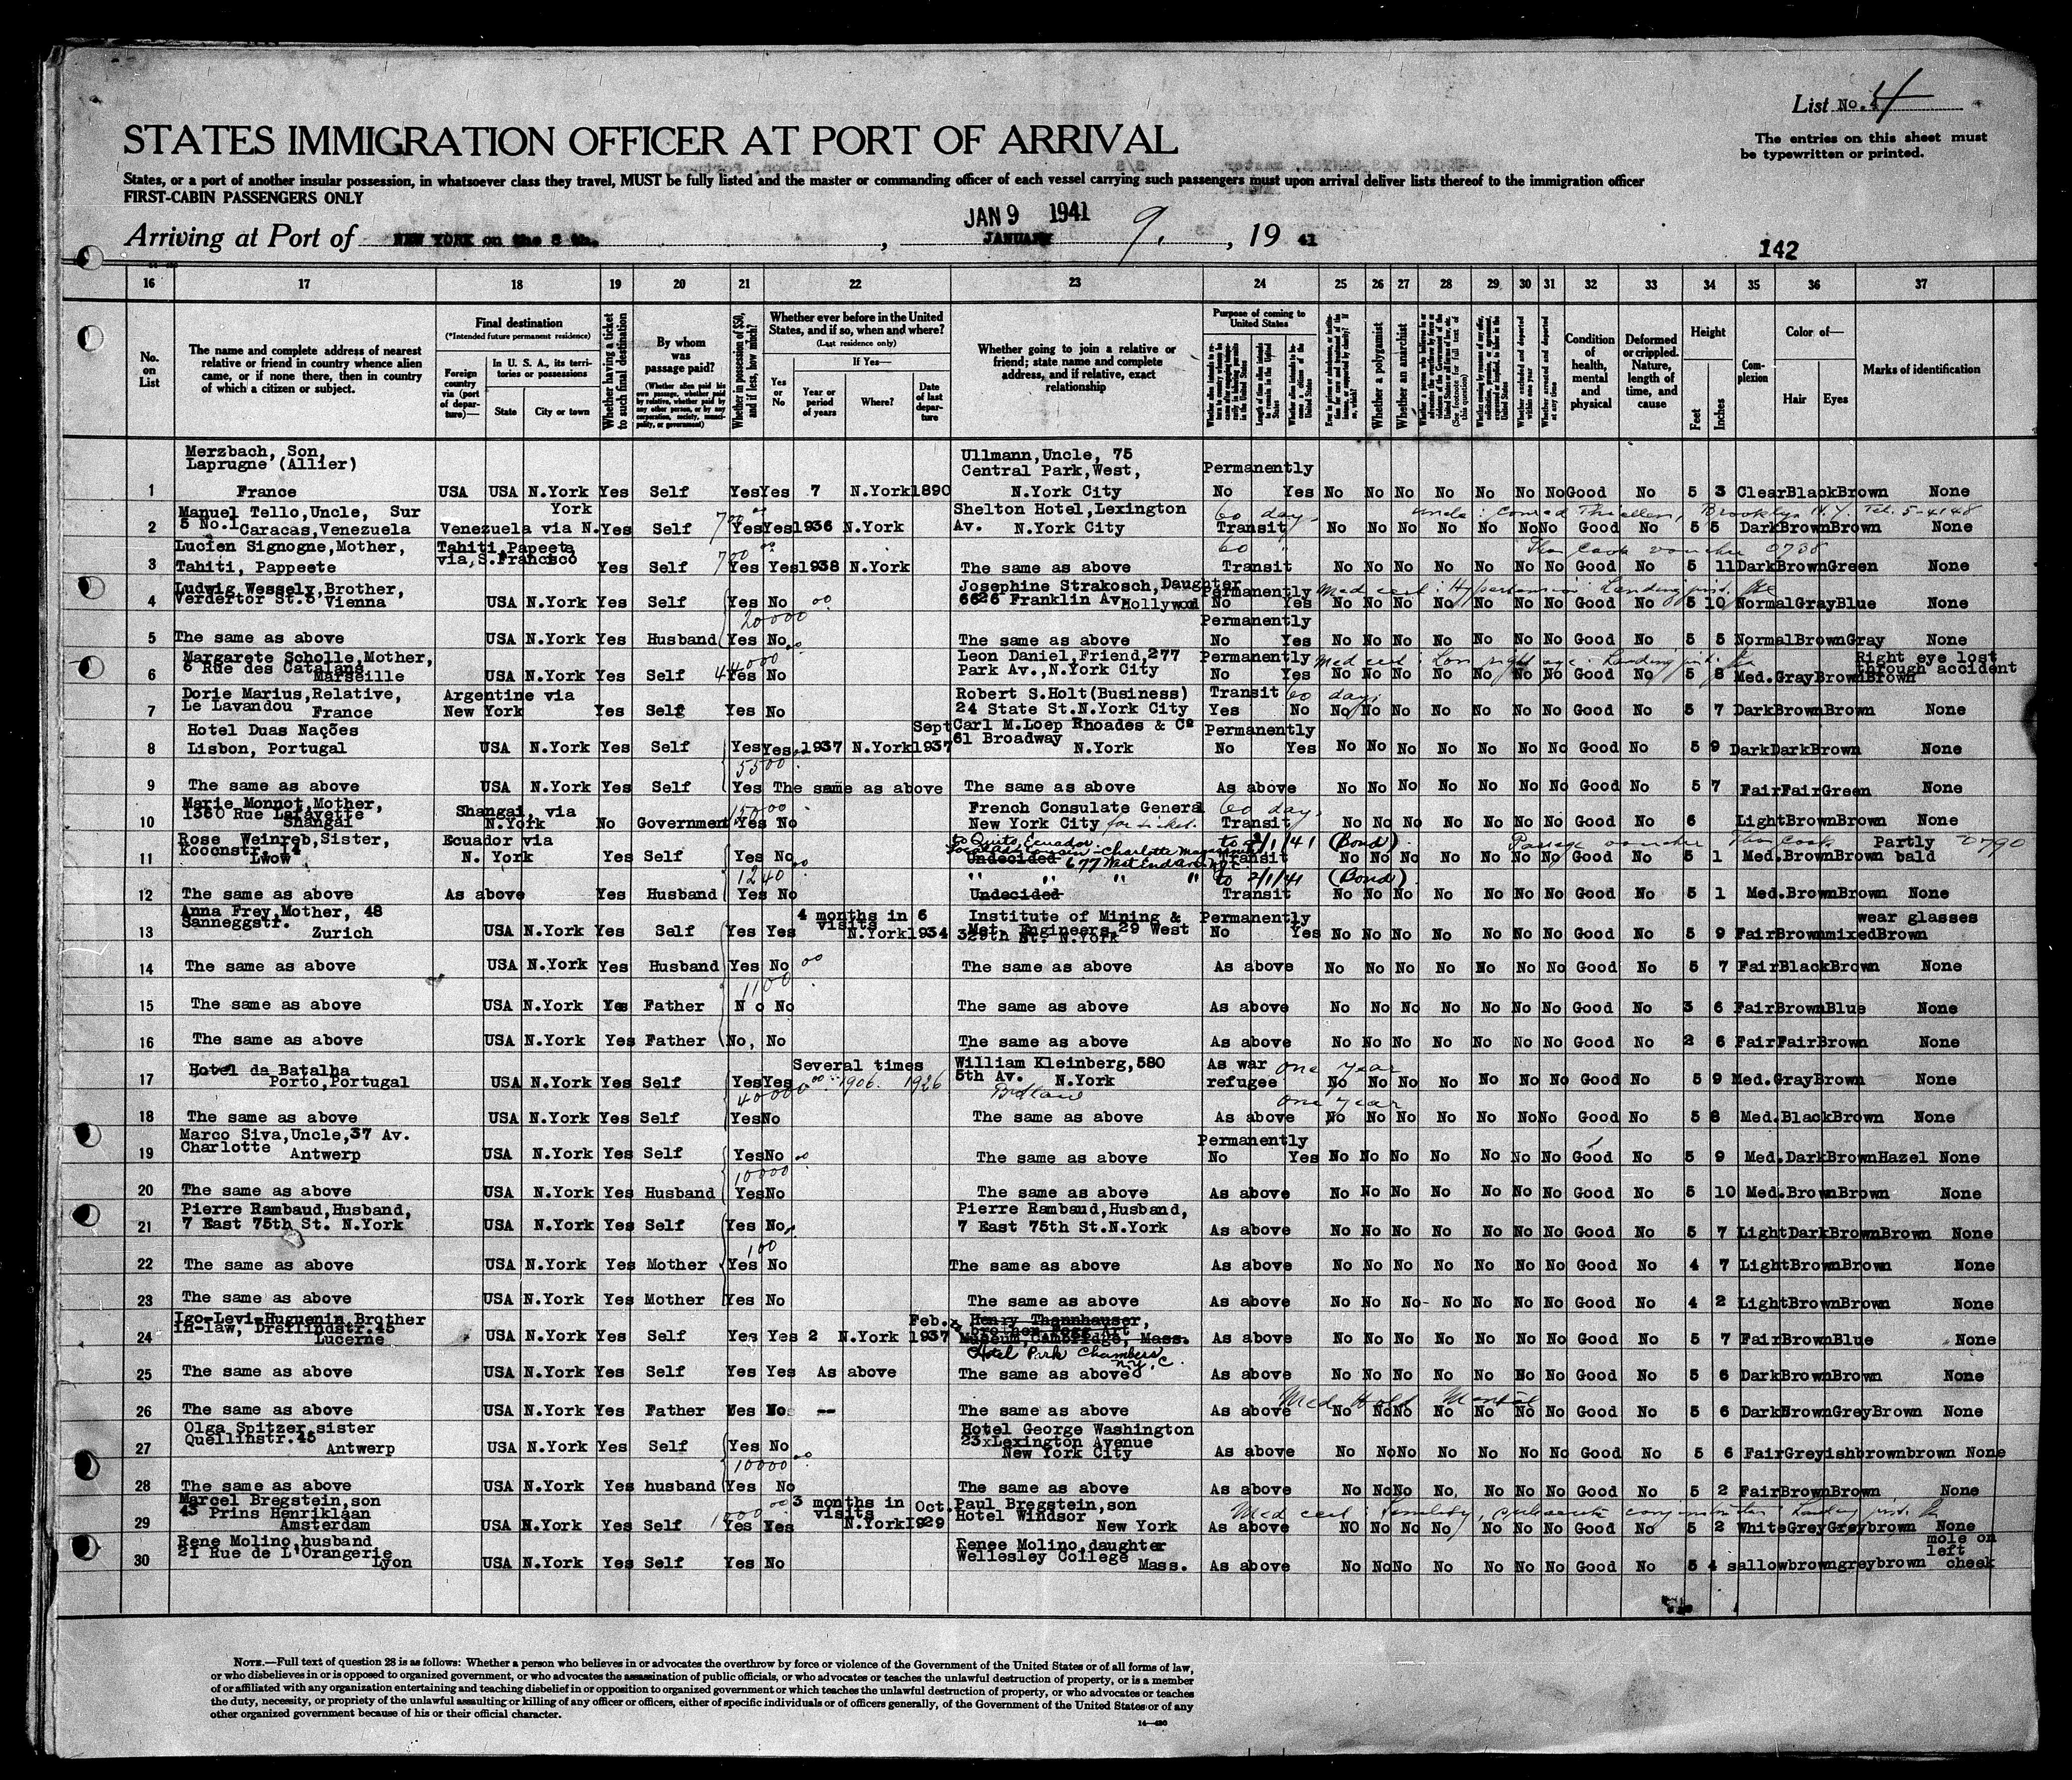 List No. 4
STATES IMMIGRATION OFFICER AT PORT OF ARRIVAL
The entries on this sheet must
be typewritten or printed.
States, or a port of another insular possession, in whatsoever class they travel, MUST be fully listed and the master or commanding officer of each vessel carrying such passengers must upon arrival deliver lists thereof to the immigration officer
FIRST-CABIN PASSENGERS ONLY
JAN 9 1941
Arriving at Port of NEW YORK on the 8 th. , JANUARY 9. , 19 41
142
16 17 18 19 20 21 22 23 24 25 26 27 28 29 30 31 32 33 34 35 36 37
No. on List
The name and complete address of nearest relative or friend in country whence alien came, or if none there, then in country of which a citizen or subject.
Final destination
(*Intended future permanent residence)
Foreign country via (port of departure)—
In U. S. A., its territories or possessions
State
City or town
Whether having a ticket to such final destination
By whom was passage paid?
(Whether alien paid his own passage, whether paid by relative, whether paid by any other person, or by any corporation, society, municipality, or government)
Whether in possession of $50, and if less, how much?
Whether ever before in the United States, and if so, when and where?
(Last residence only)
Yes or No
If Yes—
Year or period of years
Where?
Date of last departure
Whether going to join a relative or friend; state name and complete address, and if relative, exact relationship
Purpose of coming to United States
Whether a polygamist
Whether an anarchist
Condition of health, mental and physical
Deformed or crippled. Nature, length of time, and cause
Height
Feet
Inches
Complexion
Color of—
Hair
Eyes
Marks of identification
Merzbach, Son, Ullmann,Uncle, 75
Laprugne (Allier) Central Park,West, Permanently
1 France USA USA N.York Yes Self Yes Yes 7 N.York 1890 N.York City No Yes No No No No No No No Good No 5 3 Clear Black Brown None
Manuel Tello,Uncle, Sur York Shelton Hotel,Lexington 60 days uncle: Conrad Thieллen, Brooklyn N.Y. Tel. 5-4148
2 5 No.1 Caracas,Venezuela Venezuela via N. Yes Self 700 Yes Yes 1936 N.York Av. N.York City Transit No No No No No No No Good No 5 5 Dark Brown Brown None
Lucien Signogne,Mother, Tahiti,Papeete 60 " Thos Cook voucher 0738
3 Tahiti, Pappeete via,S.Francisco Yes Self 700 Yes Yes 1938 N.York The same as above Transit No No No No No No No Good No 5 11 Dark Brown Green None
Ludwig Wessely,Brother, Josephine Strakosch,Daughter Permanently Med cert: Hypertension
4 Verdertor St.5 Vienna USA N.York Yes Self Yes No 6626 Franklin Av. Hollywod No Yes No No No No No No No Good No 5 10 Normal Gray Blue None
20000 Permanently
5 The same as above USA N.York Yes Husband Yes No The same as above No Yes No No No No No No No Good No 5 5 Normal Brown Gray None
Margarete Scholle,Mother, 44000 Leon Daniel,Friend,277 Permanently Med cert: Loss right eye. Right eye lost
6 6 Rue des Catalans Marseille USA N.York Yes Self Yes No Park Av.,N.York City No Yes No No No No No No No Good No 5 8 Med. Gray Brown Brown through accident
Dorie Marius,Relative, Argentine via Robert S.Holt(Business) Transit 60 days
7 Le Lavandou France New York Yes Self Yes No 24 State St.N.York City Yes No No No No No No No No Good No 5 7 Dark Brown Brown None
Hotel Duas Nações Sept Carl M.Loep Rhoades & Cº Permanently
8 Lisbon, Portugal USA N.York Yes Self Yes Yes 1937 N.York 1937 61 Broadway N.York No Yes No No No No No No No Good No 5 9 Dark Dark Brown None
5500
9 The same as above USA N.York Yes Self Yes The same as above The same as above As above No No No No No No No Good No 5 7 Fair Fair Green None
Marie Monnot,Mother, Shangai, via 150 French Consulate Genera 60 days
10 1360 Rue Lafayette Shangai N.York No Government Yes No New York City for ticket. Transit No No No No No No No Good No 6 Light Brown Brown None
Rose Weinreb,Sister, Ecuador via to Quito,Ecuador to 2/1/41 (Bond) Passage voucher Thos Cook 0790 Partly
11 Koonstr. 14 Lwow N. York Yes Self Yes No Undecided 677 West End Ave Transit No No No No No No No Good No 5 1 Med. Brown Brown bald
1240 " " " " to 2/1/41 (Bond)
12 The same as above As above Yes Husband Yes No Undecided Transit No No No No No No No Good No 5 1 Med. Brown Brown None
Anna Frey,Mother, 48 4 months in 6 visits Institute of Mining & Permanently wear glasses
13 Sanneggstr. Zurich USA N.York Yes Self Yes Yes N.York 1934 Met. Engineers,29 West 329th St. N.York No Yes No No No No No No No Good No 5 9 Fair Brownmixed Brown
14 The same as above USA N.York Yes Husband Yes No The same as above As above No No No No No No No Good No 5 7 Fair Black Brown None
1100
15 The same as above USA N.York Yes Father No No The same as above As above No No No No No No No Good No 3 6 Fair Brown Blue None
16 The same as above USA N.York Yes Father No, No The same as above As above No No No No No No No Good No 2 6 Fair Fair Brown None
Hotel da Batalha Several times William Kleinberg,580 As war one year
17 Porto,Portugal USA N.York Yes Self Yes Yes 1906. 1926 5th Av. N.York refugee No No No No No No No Good No 5 9 Med. Gray Brown None
40000 one year
18 The same as above USA N.York Yes Self Yes No The same as above As above No No No No No No No Good No 5 8 Med. Black Brown None
Marco Siva,Uncle,37 Av. Permanently
19 Charlotte Antwerp USA N.York Yes Self Yes No The same as above No Yes No No No No No No No Good No 5 9 Med. Dark Brown Hazel None
10000
20 The same as above USA N.York Yes Husband Yes No The same as above As above No No No No No No No Good No 5 10 Med. Brown Brown None
Pierre Rambaud,Husband, Pierre Rambaud,Husband,
21 7 East 75th St. N.York USA N.York Yes Self Yes No 7 East 75th St.N.York As above No No No No No No No Good No 5 7 Light Dark Brown Brown None
100
22 The same as above USA N.York Yes Mother Yes No The same as above As above No No No No No No No Good No 4 7 Light Brown Brown None
23 The same as above USA N.York Yes Mother Yes No The same as above As above No No No No No No No Good No 4 2 Light Brown Brown None
Igo-Levi-Huguenin Brother Feb. Henry Thannhauser,
24 in-law, Dreilindstr.45 Lucerne USA N.York Yes Self Yes Yes 2 N.York 1937 Museum,Cambridge, Mass. As above No No No No No No No Good No 5 7 Fair Brown Blue None
Hotel Park Chambers N.Y.C.
25 The same as above USA N.York Yes Self Yes Yes As above The same as above As above No No No No No No No Good No 5 6 Dark Brown Brown None
Med Hold Mental
26 The same as above USA N.York Yes Father Yes No -- The same as above As above No No No No No No No Good No 5 6 Dark Brown Grey Brown None
Olga Spitzer,sister Hotel George Washington
27 Quellinstr.45 Antwerp USA N.York Yes Self Yes No 23xLexington Avenue New York City As above No No No No No No No Good No 5 6 Fair Greyishbrown brown None
10000
28 The same as above USA N.York Yes husband Yes No The same as above As above No No No No, No No No Good No 5 2 Fair Brown Brown None
Marcel Bregstein,son 3 months in visits Oct. Paul Bregstein,son Med cert: Senility,
29 43 Prins Henriklaan Amsterdam USA N.York Yes Self 1000 Yes Yes N.York 1929 Hotel Windsor New York As above No No No No No No No Good No 5 2 White Grey Greybrown None
Rene Molino,husband Renee Molino,daughter mole on left
30 21 Rue de L'Orangerie Lyon USA N.York Yes Self Yes No Wellesley College Mass. As above No No No No No No No Good No 5 4 sallow browngrey brown cheek
NOTE.—Full text of question 28 is as follows: Whether a person who believes in or advocates the overthrow by force or violence of the Government of the United States or of all forms of law,
or who disbelieves in or is opposed to organized government, or who advocates the assassination of public officials, or who advocates or teaches the unlawful destruction of property, or is a member
of or affiliated with any organization entertaining and teaching disbelief in or opposition to organized government or which teaches the unlawful destruction of property, or who advocates or teaches
the duty, necessity, or propriety of the unlawful assaulting or killing of any officer or officers, either of specific individuals or of officers generally, of the Government of the United States or of any
other organized government because of his or their official character.
14—430